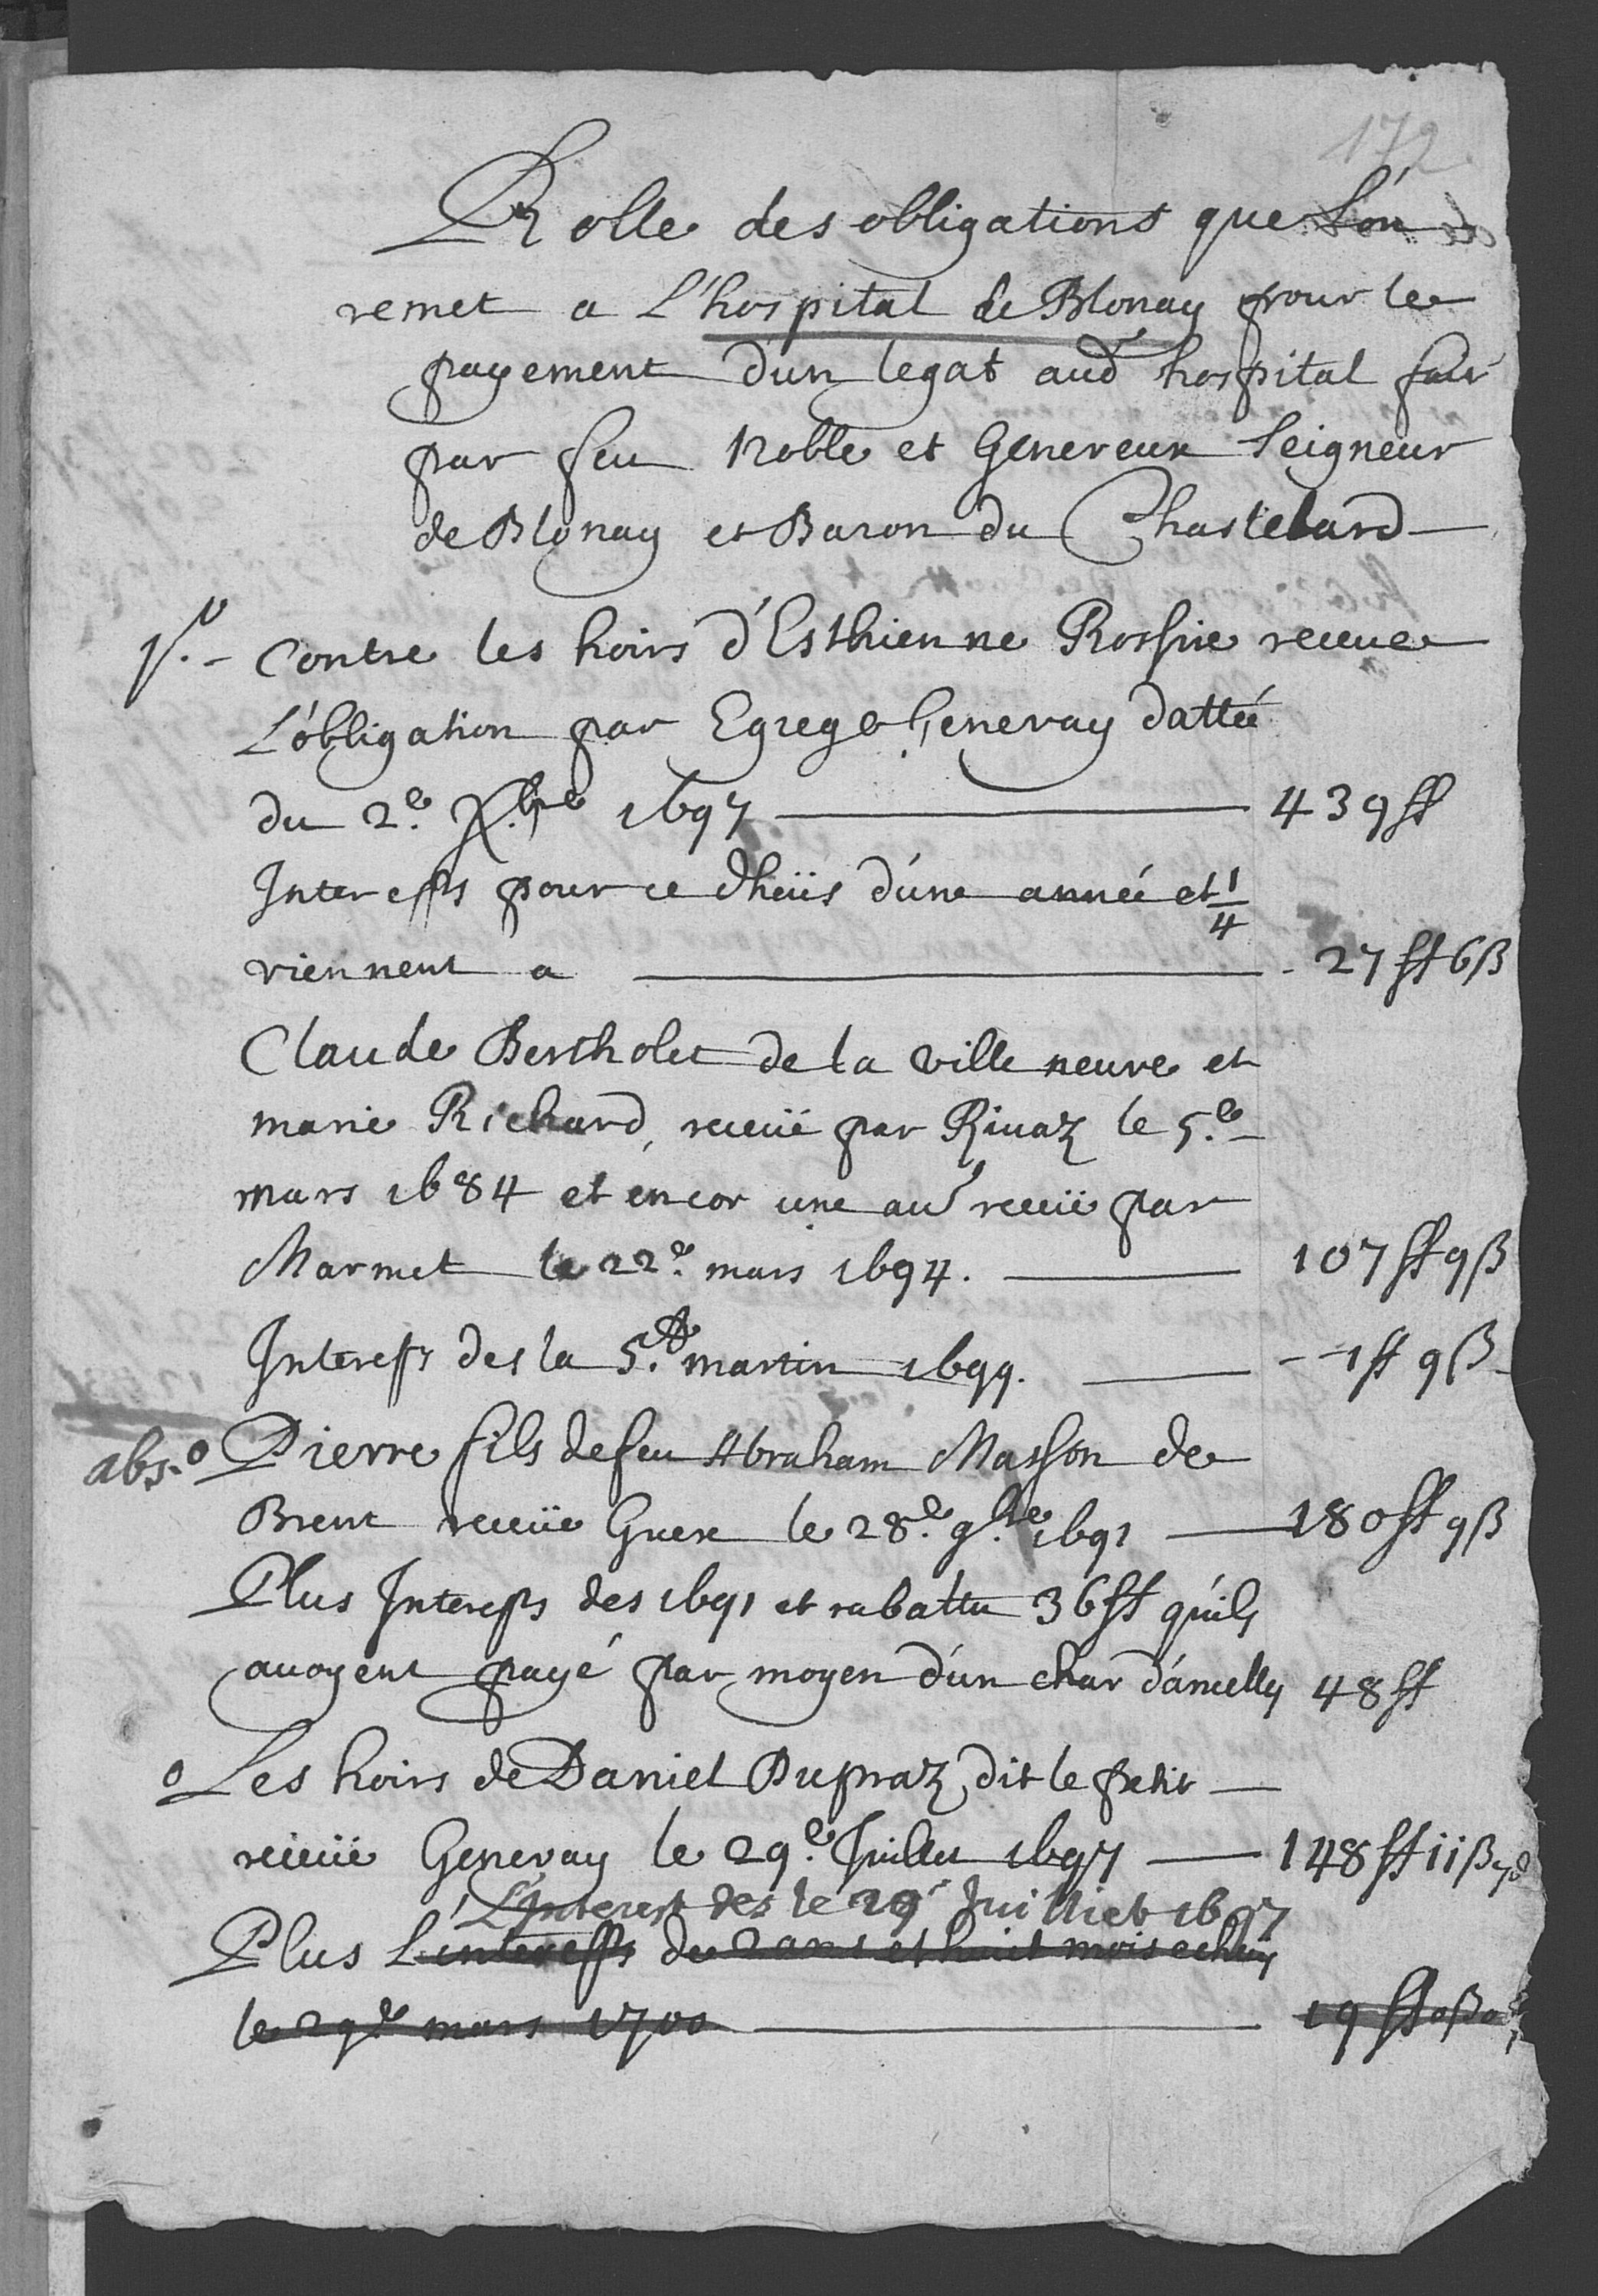 172
Rolle des obligations que l'on
remet a L'hospital de Blonay pour le
payement d'un legat aud hospital fait
par feu Noble et Genereux Seigneur
de Blonay et Baron du Chastelard
1.° Contre les hoirs d'Esthienne receue
L'obligation par Egrege Genevay dattée
du 2.e X.bre 1697 439 ff
Interests pour ce dheüs d'une année et 1/4
viennent a 27 ff 6 ß
Claude Bertholet de la ville neuve et
marie Richard, receüe par Rivaz le 5.e
mars 1684 et encor une aut receüe par
Marmet le 22.e mars 1694. 107 ff 9 ß
Interests des la S.t martin 1699. 1 ff 9 ß
abs. o Pierre fils de feu Abraham Masson de
Brent receüe Guex le 28.e 9.bre 1691 180 ff 9 ß
Plus Interests des 1691 et rabattu 36 ff qu'ils
avoyent payé par moyen d'un char d'ancelles 48 ff
o Les hoirs de Daniel Dupraz dit le petit
receüe Genevay le 29.e Juillet 1697 148 ff 11 ß
L'Interest des le 29 Juilliet 1697
Plus L'interests de 2 ans et huit mois echeus
le 29.e mars 1700 19 ff